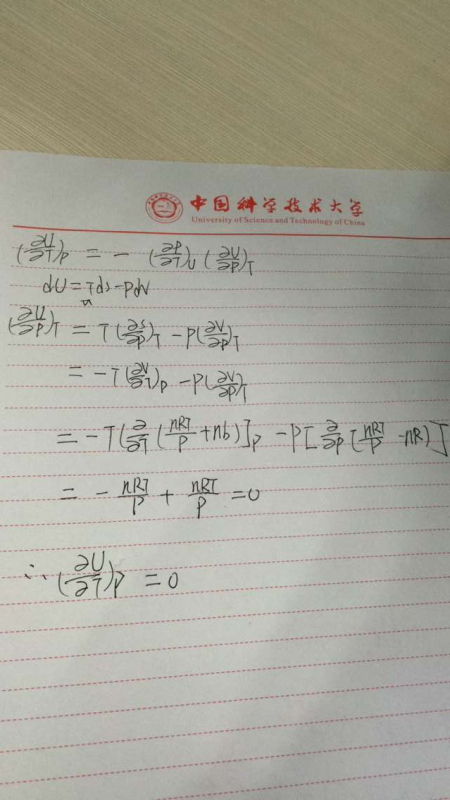 中国科学技术大学
University of Science and Technology of China
(∂U/∂T)_P = - (∂P/∂T)_U (∂U/∂P)_T
dU = TdS - PdV
(∂U/∂P)_T = T(∂S/∂P)_T - P(∂V/∂P)_T
= -T(∂V/∂T)_P - P(∂V/∂P)_T
= -T[∂/∂T (nRT/P + nb)]_P - P[∂/∂P [nRT/P - nR)]
= - nRT/P + nRT/P = 0
∴ (∂U/∂T)_P = 0